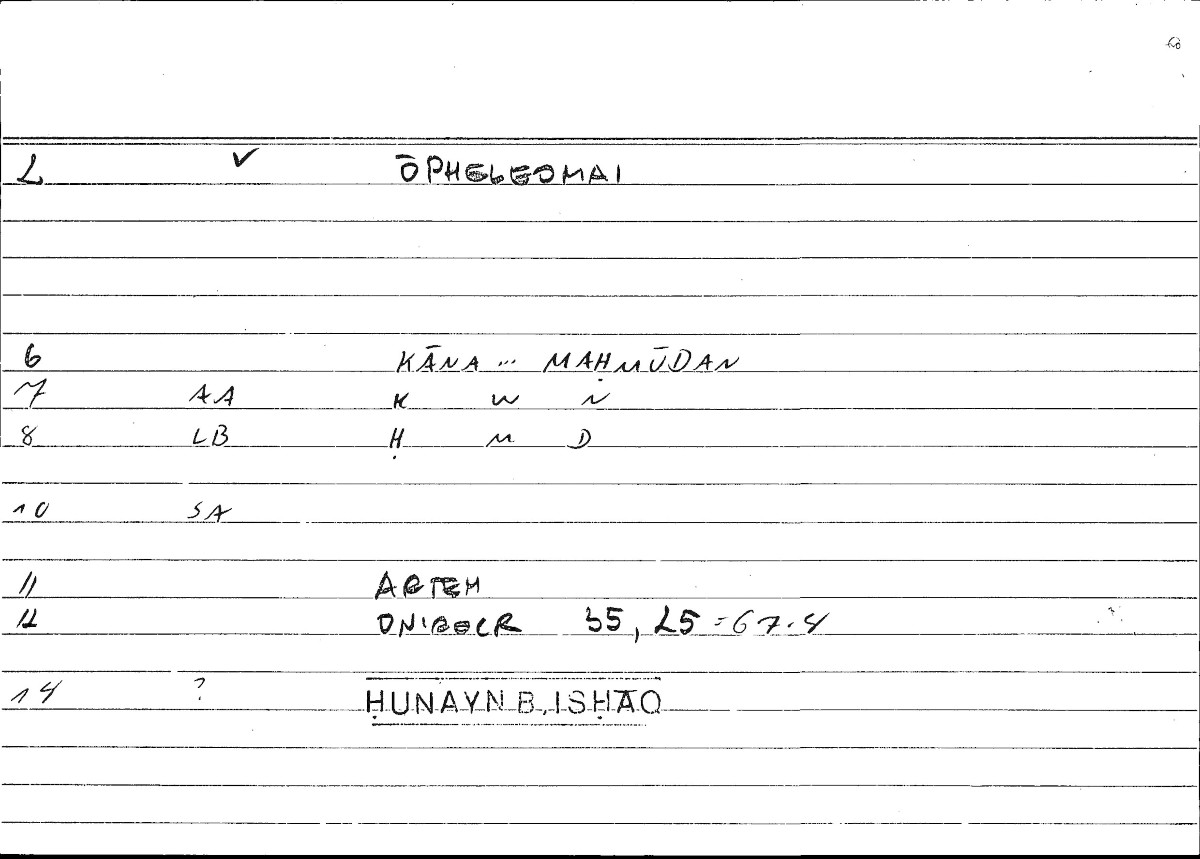 2 ✓ ŌPHELEOMAI
6 KĀNA ... MAḤMŪDAN
7 AA K W N
8 LB Ḥ M D
10 SA
11 ARTEM
12 ONIROCR 35, 25 = 67.4
14 ? ḤUNAYN B. ISḤĀQ